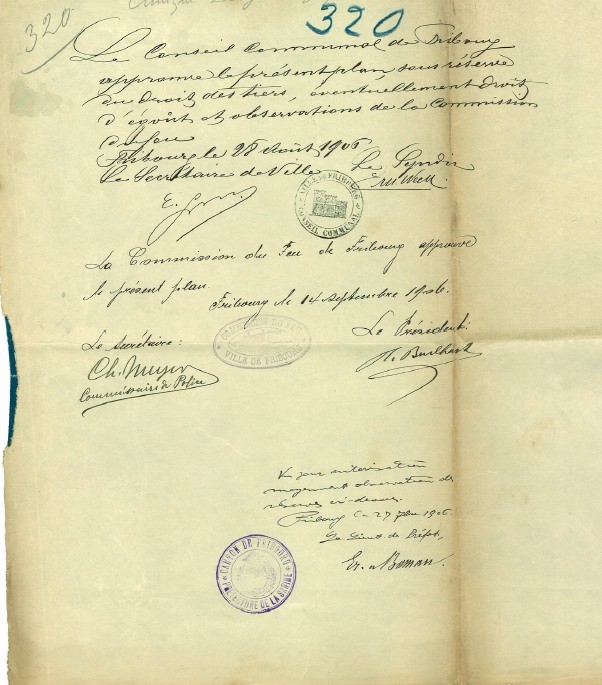 320
320
Le Conseil Communal de Fribourg
approuve le présent plan sous réserve
du Droit des tiers, éventuellement Droit
d'égoût et observations de la Commission
du feu
Fribourg le 28 Août 1906
Le Secrétaire de Ville Le Syndic
VILLE DE FRIBOURG
CONSEIL COMMUNAL
La Commission du Feu de Fribourg approuve
le présent plan.
Fribourg le 14 septembre 1906.
Le Secrétaire: Le Président:
COMMISSION DU FEU
VILLE DE FRIBOURG
Ch. Meyer
Commissaire de Police
Vu pour autorisation
moyennant observation des
réserves ci-dessus.
Fribourg le 27 1906
Le Lieut de Préfet,
CANTON DE FRIBOURG
PRÉFECTURE DE LA SARINE